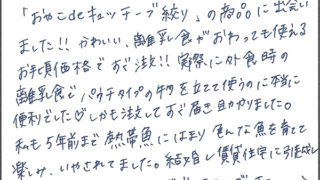 「おやこdeキッチーブ絞り」の商品に出会い
ました!! かわいい、離乳食がおわっても使える
お手頃価格ですぐ注文!! 実際に外食時の
離乳食で パウチタイプの物を立てて使うのに本当に
便利でした♡しかも注文してすぐ届き助かりました。
私も5年前まで熱帯魚にはまり 色んな魚を育て
楽しみ、いやされてました。結婚し賃貸住宅に引越し